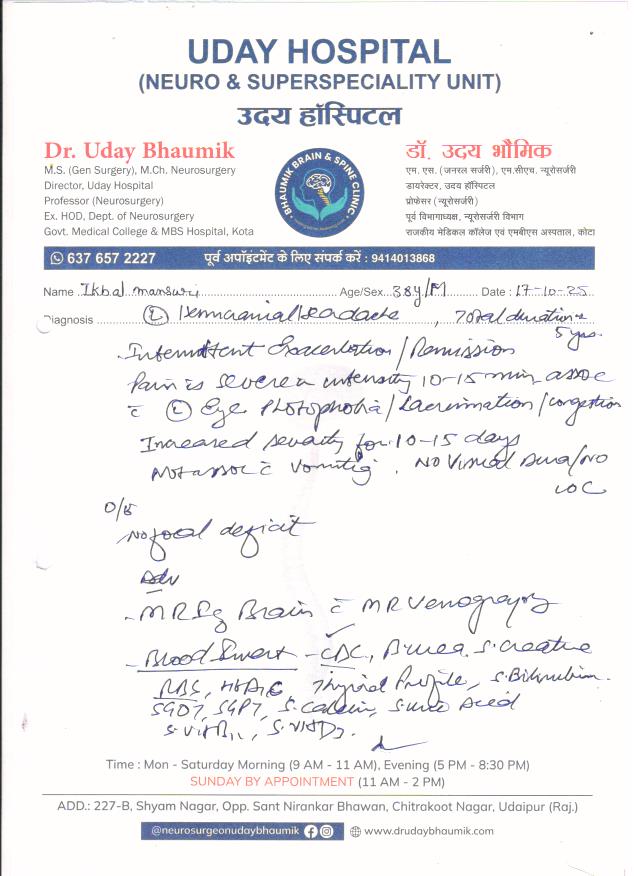 UDAY HOSPITAL
(NEURO & SUPERSPECIALITY UNIT)
उदय हॉस्पिटल
Dr. Uday Bhaumik
M.S. (Gen Surgery), M.Ch. Neurosurgery
Director, Uday Hospital
Professor (Neurosurgery)
Ex. HOD, Dept. of Neurosurgery
Govt. Medical College & MBS Hospital, Kota
BHAUMIK BRAIN & SPINE CLINIC
डॉ. उदय भौमिक
एम. एस. (जनरल सर्जरी), एम.सीएच. न्यूरोसर्जरी
डायरेक्टर, उदय हॉस्पिटल
प्रोफेसर (न्यूरोसर्जरी)
पूर्व विभागाध्यक्ष, न्यूरोसर्जरी विभाग
राजकीय मेडिकल कॉलेज एवं एमबीएस अस्पताल, कोटा
637 657 2227 पूर्व अपॉइंटमेंट के लिए संपर्क करें : 9414013868
Name Ikbal mansuri Age/Sex 38y/M Date : 17-10-25
Diagnosis (L) Hemicranial Headache, Total duration
5 yrs.
Intermittent Exacerbation/Remission
Pain is severe in intensity 10-15 min assoc
c̄ (L) Eye Photophobia/Lacrimation/congestion
Increased severity for 10-15 days
Not assoc c̄ vomiting. No Visual Aura/No
LOC
O/E
No focal deficit
Adv
- MRI Brain c̄ MR Venography
- Blood Invest - CBC, B.urea, S.creatine
RBS, HbA1c Thyroid Profile, S.Bilirubin
SGOT, SGPT, S.Calcium, S.uric Acid
S.VitB12, S.VitD3.
Time : Mon - Saturday Morning (9 AM - 11 AM), Evening (5 PM - 8:30 PM)
SUNDAY BY APPOINTMENT (11 AM - 2 PM)
ADD.: 227-B, Shyam Nagar, Opp. Sant Nirankar Bhawan, Chitrakoot Nagar, Udaipur (Raj.)
@neurosurgeonudaybhaumik www.drudaybhaumik.com